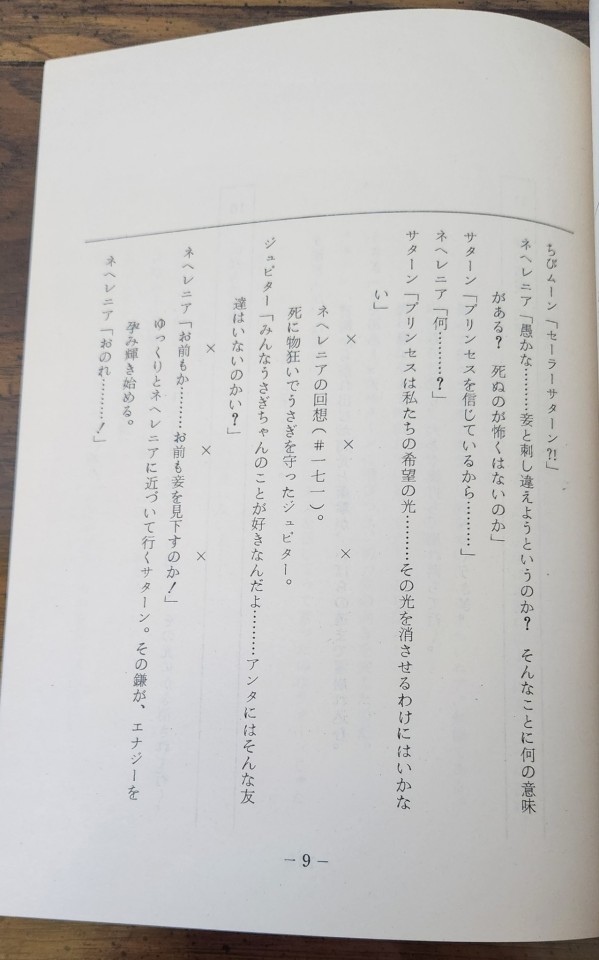 ちびムーン「セーラーサターン?!」
ネヘレニア「愚かな………妾と刺し違えようというのか？　そんなことに何の意味
がある？　死ぬのが怖くはないのか」
サターン「プリンセスを信じているから………」
ネヘレニア「何………？」
サターン「プリンセスは私たちの希望の光………その光を消させるわけにはいかな
い」
×　×　×
ネヘレニアの回想（＃一七一）。
死に物狂いでうさぎを守ったジュピター。
ジュピター「みんなうさぎちゃんのことが好きなんだよ………アンタにはそんな友
達はいないのかい？」
×　×　×
ネヘレニア「お前もか………お前も妾を見下すのか！」
ゆっくりとネヘレニアに近づいて行くサターン。その鎌が、エナジーを
孕み輝き始める。
ネヘレニア「おのれ………！」
－9－